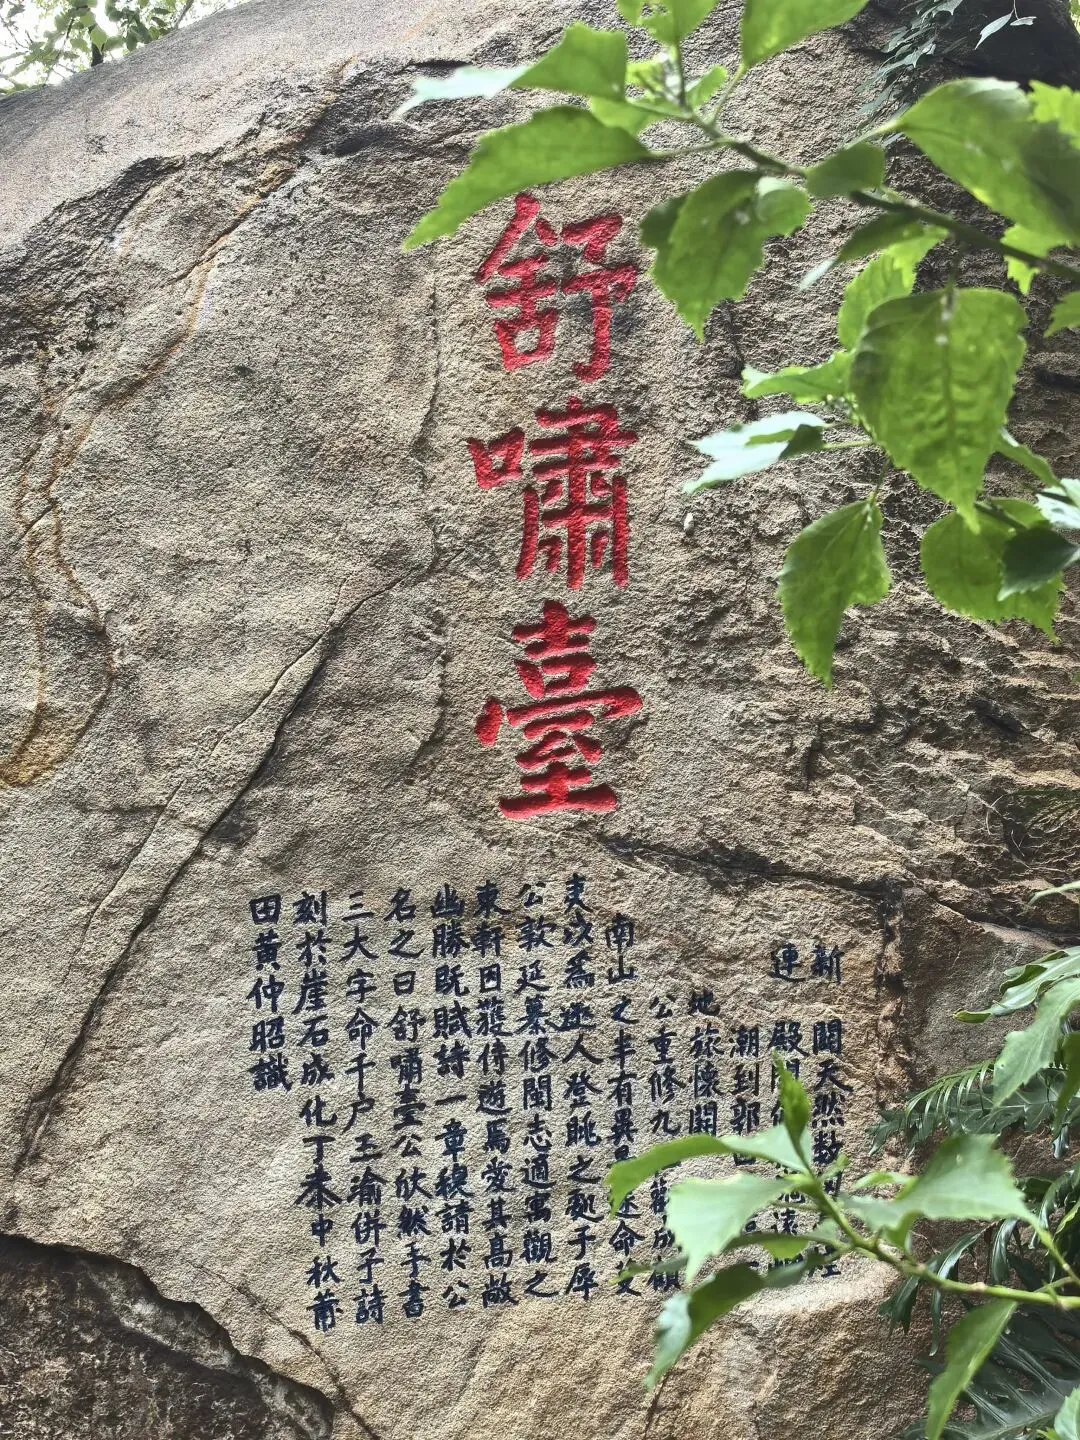 舒嘯臺
新 闢天然數
連 殿閣
潮到郭
地旅懷開
公重修九 觀成顧
南山之半有異 遂命芟
夷汝為逰人登眺之趣于厚
公欵延纂修閩志適寓觀之
東軒因獲侍遊焉愛其高敞
幽勝既賦詩一章複請於公
名之曰舒嘯臺公欣然手書
三大字命千户王渝併予詩
刻於崖石成化丁未中秋莆
田黃仲昭識